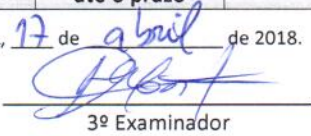 até o prazo
, 17 de abril de 2018.
3º Examinador